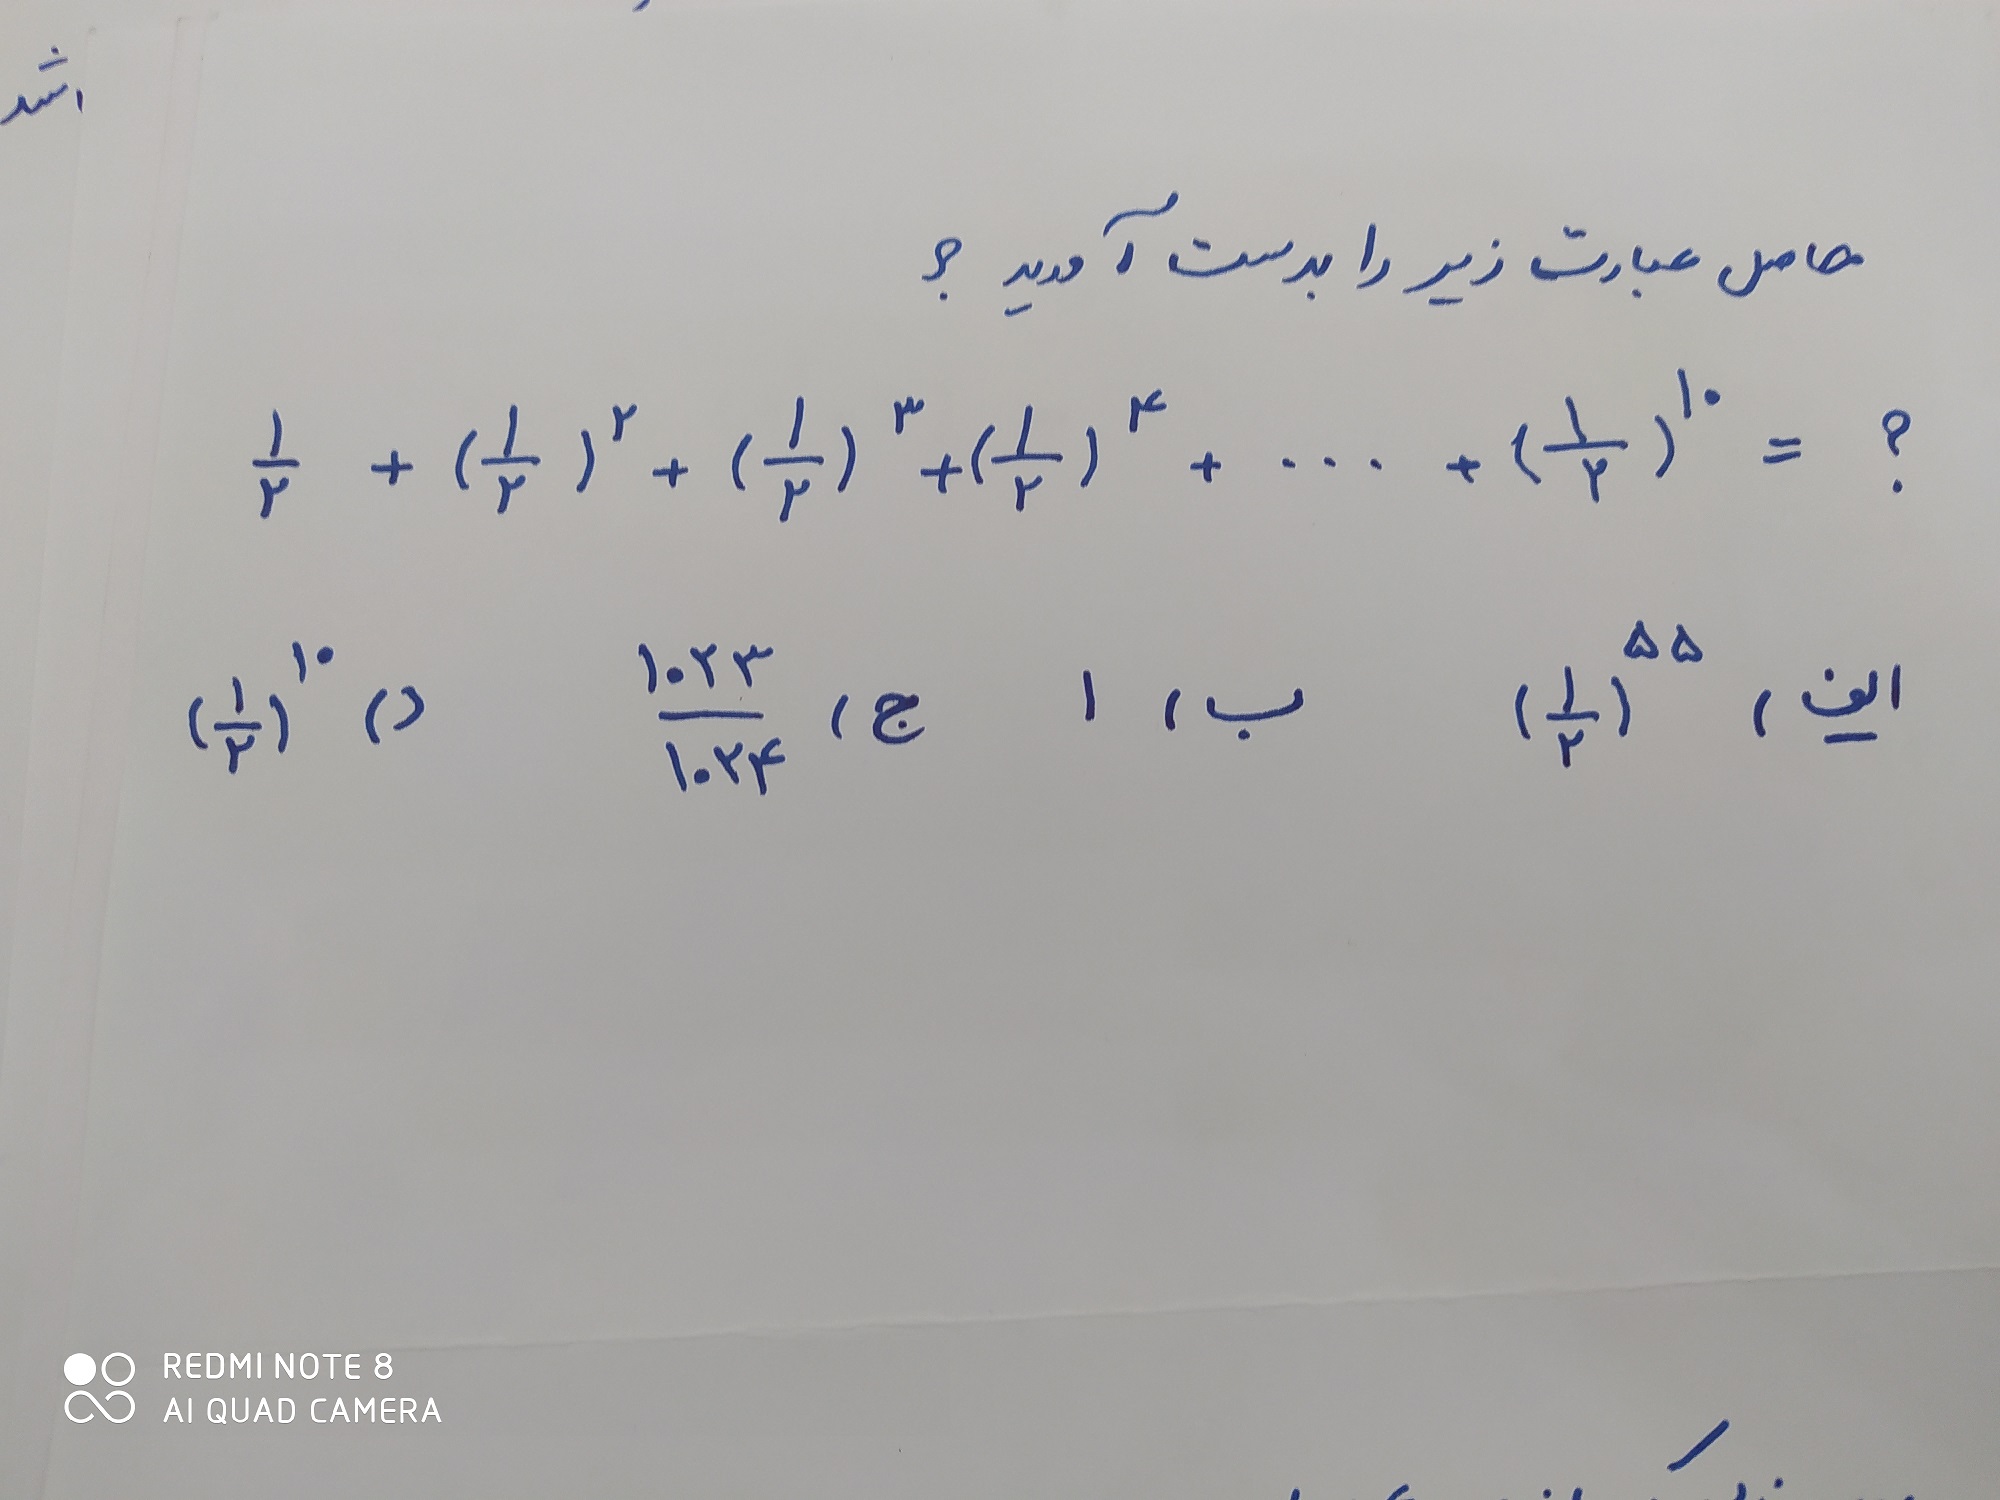 حاصل عبارت زیر را بدست آورید ؟
۱/۲ + (۱/۲)^۲ + (۱/۲)^۳ + (۱/۲)^۴ + ... + (۱/۲)^۱۰ = ؟
الف) (۱/۲)^۵۵ ب) ۱ ج) ۱۰۲۳/۱۰۲۴ د) (۱/۲)^۱۰
REDMI NOTE 8
AI QUAD CAMERA